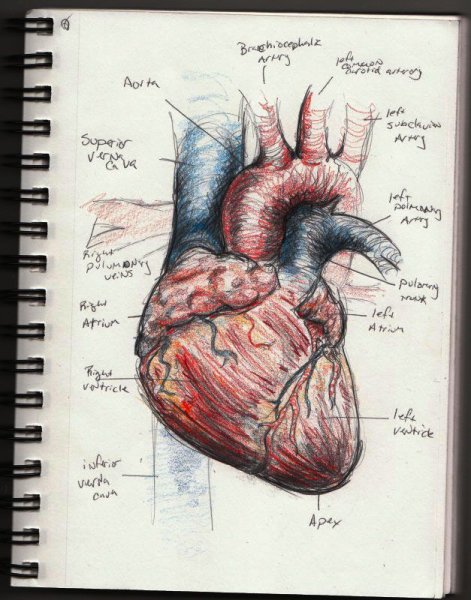 Brachiocephalic
Artery
left
common
carotid artery
Aorta
left
subclavian
Artery
Superior
verna
cava
left
pulmonary
Artery
Right
pulumonary
veins
pulmonary
trunk
Right
Atrium
left
Atrium
Right
ventricle
left
ventricle
inferior
verna
cava
Apex